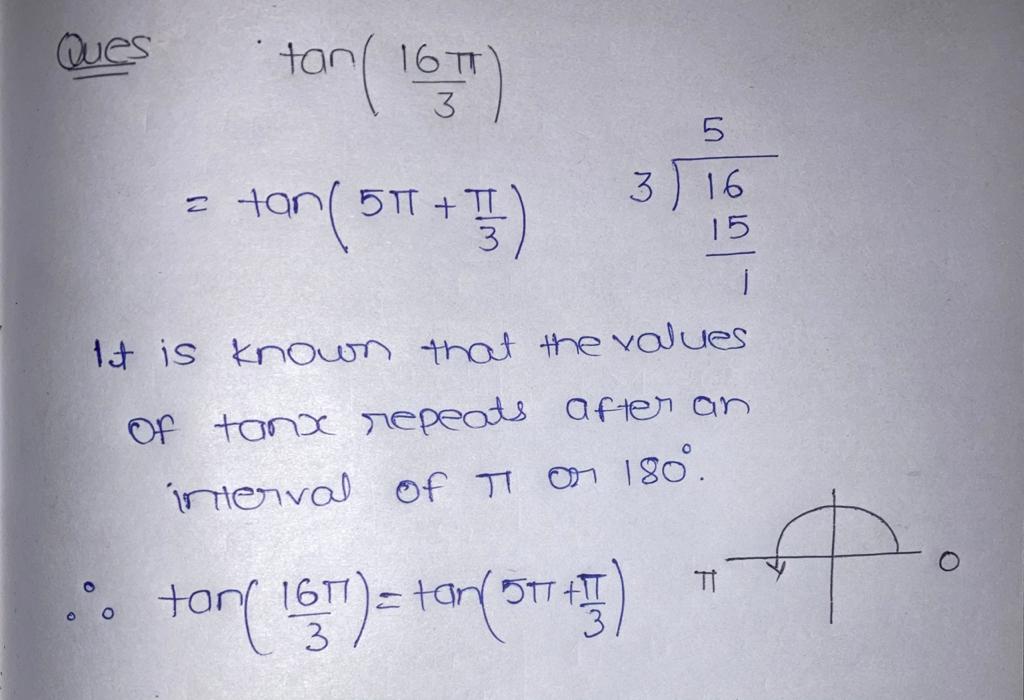 Ques tan(16π/3)
= tan(5π + π/3)
5
3) 16
15
1
It is known that the values
of tanx repeats after an
interval of π or 180°.
∴ tan(16π/3) = tan(5π + π/3)
π 0